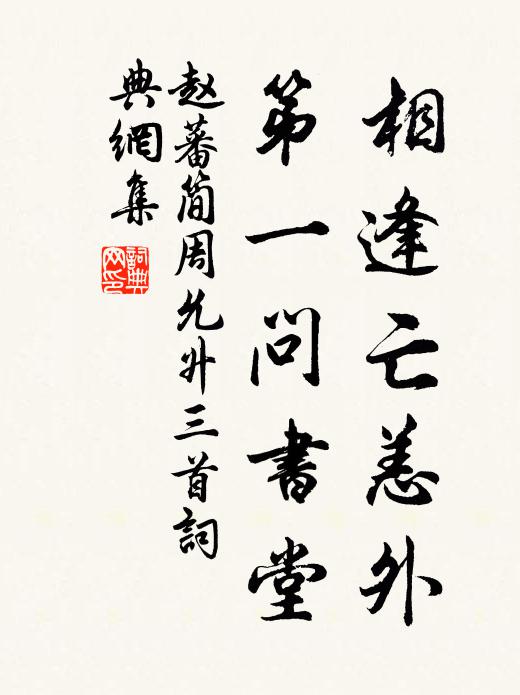 相逢亡恙外
第一問書堂
赵蕃简周允升三首詞
典網集
詞典
网印